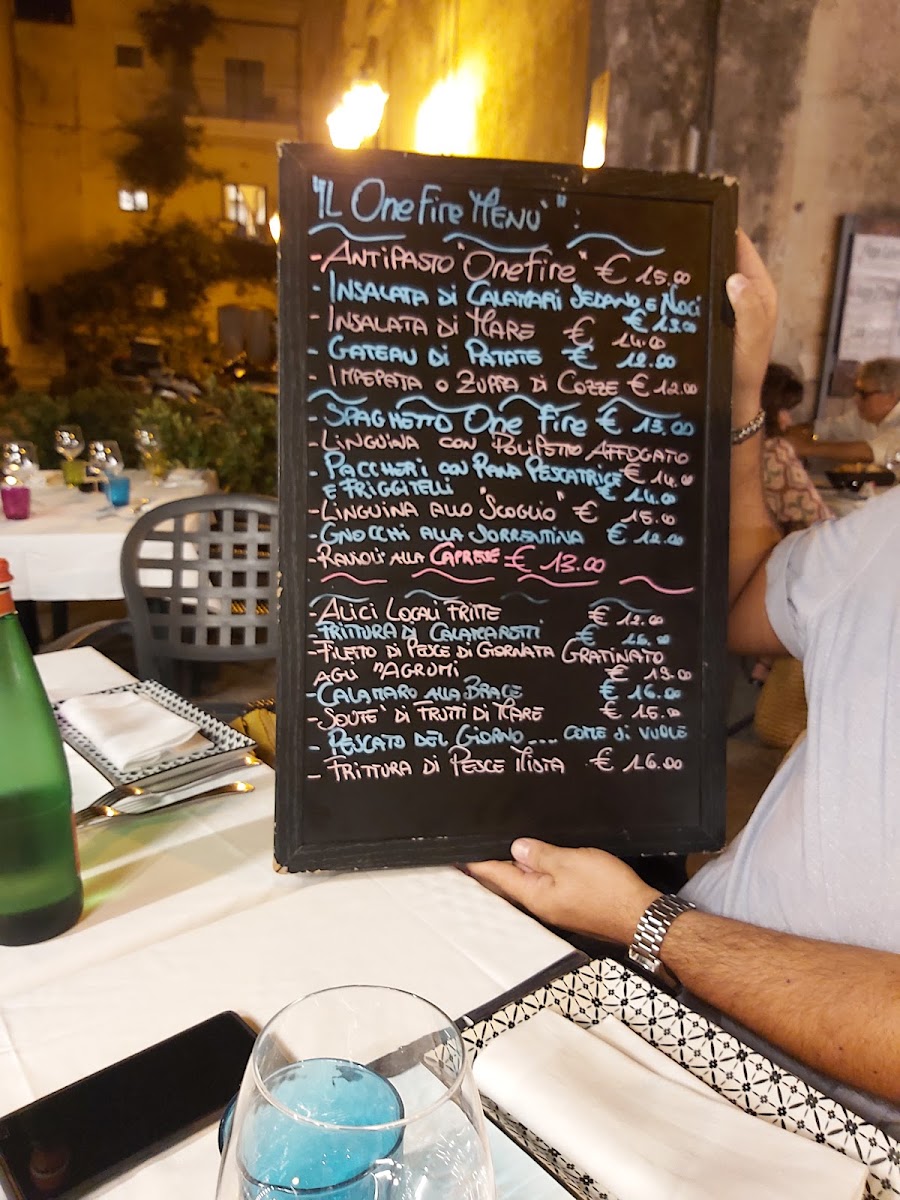 "IL ONE FIRE MENU`":
- ANTIPASTO "ONEFIRE" € 15.00
- INSALATA DI CALAMARI SEDANO E NOCI
€ 13.00
- INSALATA DI MARE € 14.00
- GATEAU DI PATATE € 12.00
- IMPEPATA O ZUPPA DI COZZE € 12.00
- SPAGHETTO ONE FIRE € 13.00
- LINGUINA CON POLIPETTO AFFOGATO
€ 14.00
- PACCHERI CON RANA PESCATRICE
E FRIGGITELLI € 14.00
- LINGUINA ALLO "SCOGLIO" € 15.00
- GNOCCHI ALLA SORRENTINA € 12.00
- RAVIOLI ALLA CAPRESE € 13.00
- ALICI LOCALI FRITTE € 12.00
- FRITTURA DI CALAMAROTTI € 16.00
- FILETTO DI PESCE DI GIORNATA GRATINATO
AGLI "AGRUMI € 13.00
- CALAMARO ALLA BRACE € 16.00
- SOUTE` DI FRUTTI DI MARE € 15.00
- PESCATO DEL GIORNO .... COME SI VUOLE
- FRITTURA DI PESCE MISTA € 16.00